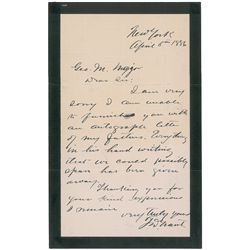 New York
April 5th 1886
Geo. M. Major
Dear Sir;
I am very
sorry I am unable
to furnish you with
an autograph letter
of my fathers. Everything
in his hand writing,
that we could possibly
spare has been given
away.
Thanking you for
your kind expressions
I remain
very truly yours
F. D. Grant